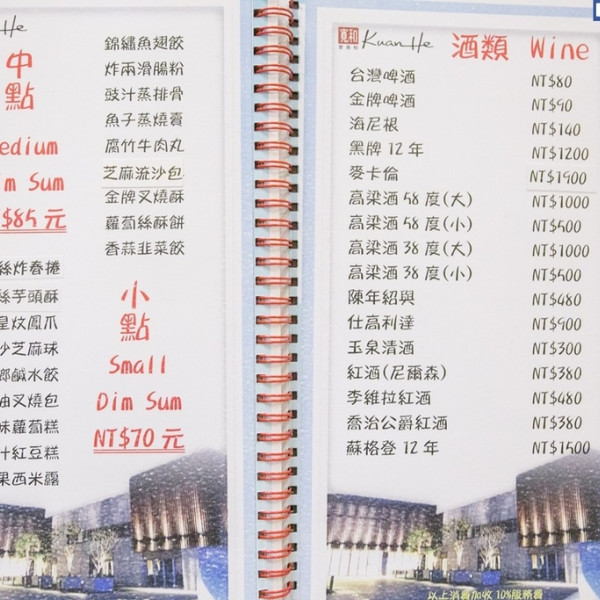 He
中
點
edium
m Sum
$85 元
錦繡魚翅餃
炸兩滑腸粉
豉汁蒸排骨
魚子蒸燒賣
腐竹牛肉丸
芝麻流沙包
金牌叉燒酥
蘿蔔絲酥餅
香蒜韭菜餃
絲炸春捲
絲芋頭酥
皇炆鳳爪
沙芝麻球
鄉鹹水餃
油叉燒包
味蘿蔔糕
汁紅豆糕
果西米露
小
點
Small
Dim Sum
NT$70 元
寬和
Kuan He
酒類 Wine
台灣啤酒 NT$80
金牌啤酒 NT$90
海尼根 NT$140
黑牌 12 年 NT$1200
麥卡倫 NT$1900
高梁酒 58 度(大) NT$1000
高梁酒 58 度(小) NT$500
高梁酒 38 度(大) NT$1000
高梁酒 38 度(小) NT$500
陳年紹興 NT$480
仕高利達 NT$900
玉泉清酒 NT$300
紅酒(尼爾森) NT$380
李維拉紅酒 NT$480
喬治公爵紅酒 NT$380
蘇格登 12 年 NT$1500
以上消費加收 10%服務費